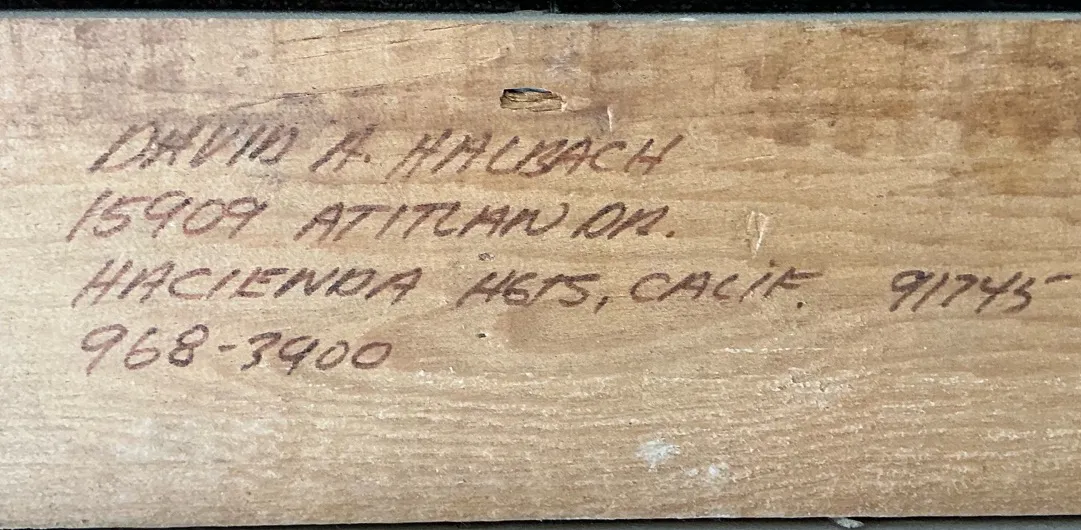 DAVID A. HALBACH
15909 ATITLAN DR.
HACIENDA HGTS, CALIF. 91745
968-3900